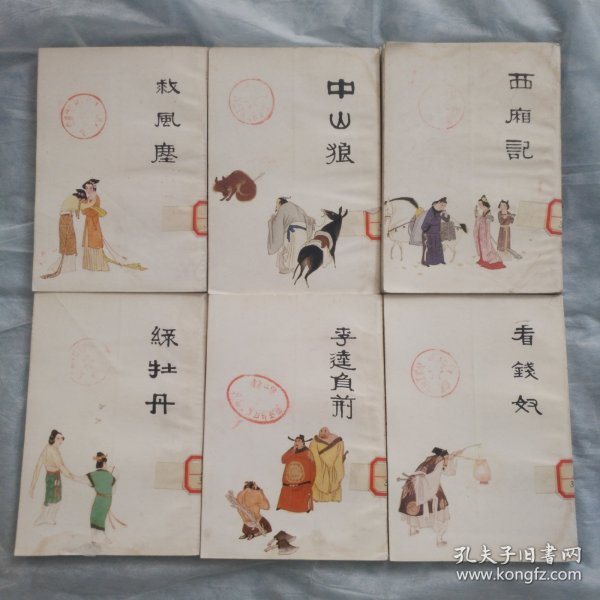 救風塵
中山狼
西廂記
綠牡丹
李逵負荊
看錢奴
孔夫子旧书网
www.kongfz.com